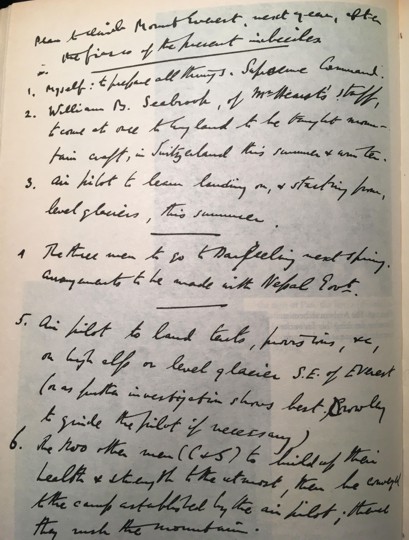 Plan to climb Mount Everest, next year, after
the fiasco of the present imbeciles
1. Myself: to prepare all things. Supreme Command.
2. William B. Seabrook, of Mr Hearst's staff,
to come at once to England to be taught moun-
tain craft, in Switzerland this summer & winter.
3. Air pilot to learn landing on, & starting from,
level glaciers, this summer.
4 The three men to go to Darjeeling next spring.
arrangements to be made with Nepal Govt.
5. Air pilot to land tents, provisions, &c,
on high alp or level glacier S.E. of Everest
(or as further investigation shows best. Crowley
to guide the pilot if necessary)
6. The two other men (C & S) to build up their
health & strength to the utmost, then be conveyed
to the camp established by the air pilot; thence
they rush the mountain.